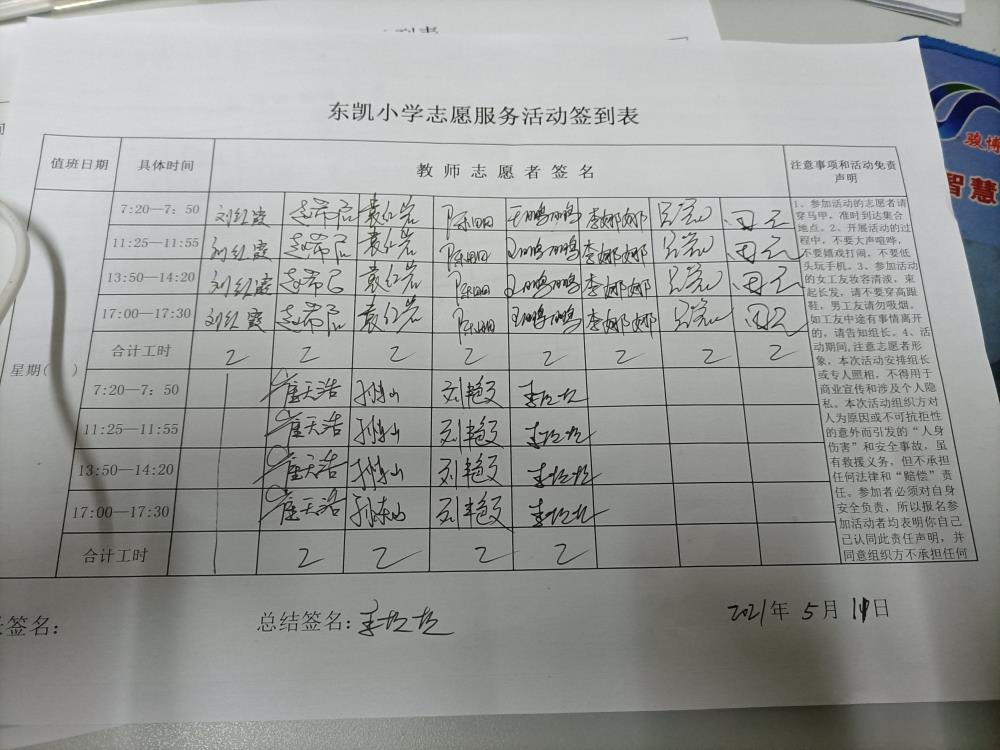 东凯小学志愿服务活动签到表
值班日期 具体时间 教师志愿者签名 注意事项和活动免责声明
星期( )
7:20—7:50 刘红霞 袁红岩 陈明明 王鹏鹏 李娜娜
11:25—11:55 刘红霞 袁红岩 陈明明 王鹏鹏 李娜娜
13:50—14:20 刘红霞 袁红岩 陈明明 王鹏鹏 李娜娜
17:00—17:30 刘红霞 袁红岩 陈明明 王鹏鹏 李娜娜
合计工时 2 2 2 2 2 2 2 2
7:20—7:50 崔天浩 孙东山 刘艳 李垃垃
11:25—11:55 崔天浩 孙东山 刘艳 李垃垃
13:50—14:20 崔天浩 孙东山 刘艳 李垃垃
17:00—17:30 崔天浩 孙东山 刘艳 李垃垃
合计工时 2 2 2 2
1、参加活动的志愿者请
穿马甲，准时到达集合
地点。2、开展活动的过
程中，不要大声喧哗，
不要嬉戏打闹，不要低
头玩手机。3、参加活动
的女工友妆容清淡，束
起长发，请不要穿高跟
鞋，男工友请勿吸烟。
如工友中途有事情离开
的，请告知组长。4、活
动期间,注意志愿者形
象，本次活动安排组长
或专人照相，不得用于
商业宣传和涉及个人隐
私。本次活动组织方对
人为原因或不可抗拒性
的意外而引发的“人身
伤害”和安全事故，虽
有救援义务，但不承担
任何法律和“赔偿”责
任。参加者必须对自身
安全负责，所以报名参
加活动者均表明你自己
已认同此责任声明，并
同意组织方不承担任何
签名：
总结签名：李垃垃
2021年 5月 日
骏博
智慧